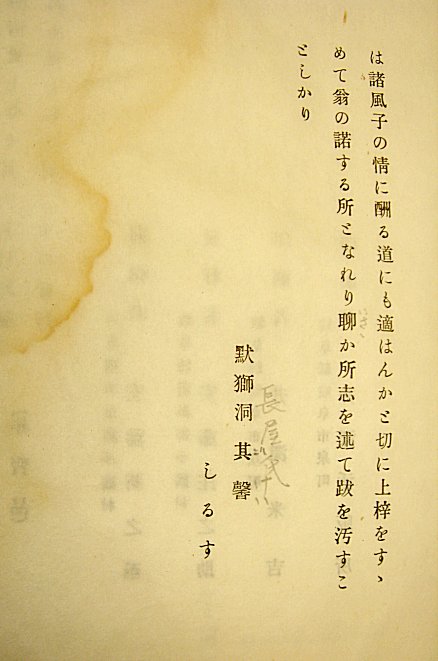 は諸風子の情に酬る道にも適はんかと切に上梓をすゝ
めて翁の諾する所となれり聊か所志を述て跋を汚すこ
としかり
默獅洞其馨
しるす
長屋